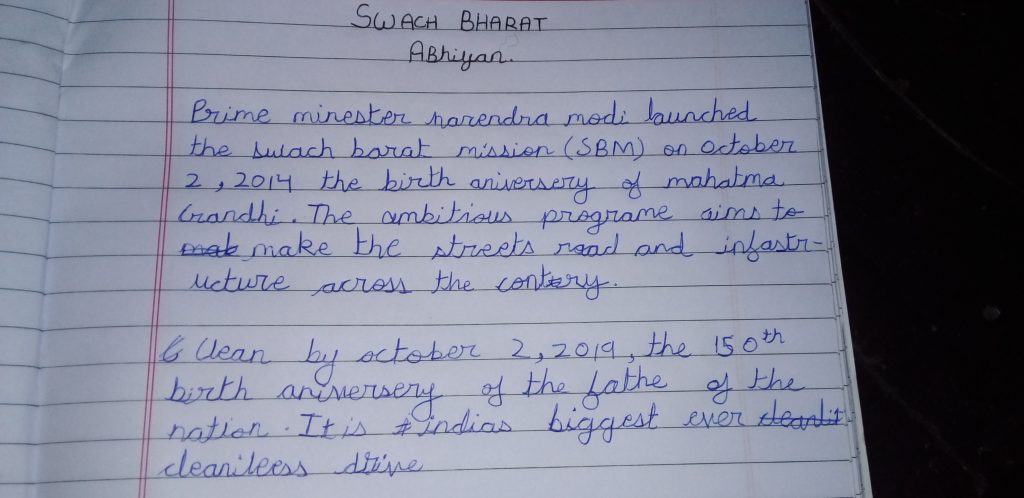 SWACH BHARAT
ABhiyan.
Prime minester narendra modi launched
the swach barat mission (SBM) on october
2, 2014 the birth aniversery of mahatma
Grandhi. The ambitious programe aims to
make the streets road and infastr-
ucture across the contery.
Clean by october 2, 2019, the 150th
birth aniversery of the fathe of the
nation. It is indias biggest ever
cleanileess drive